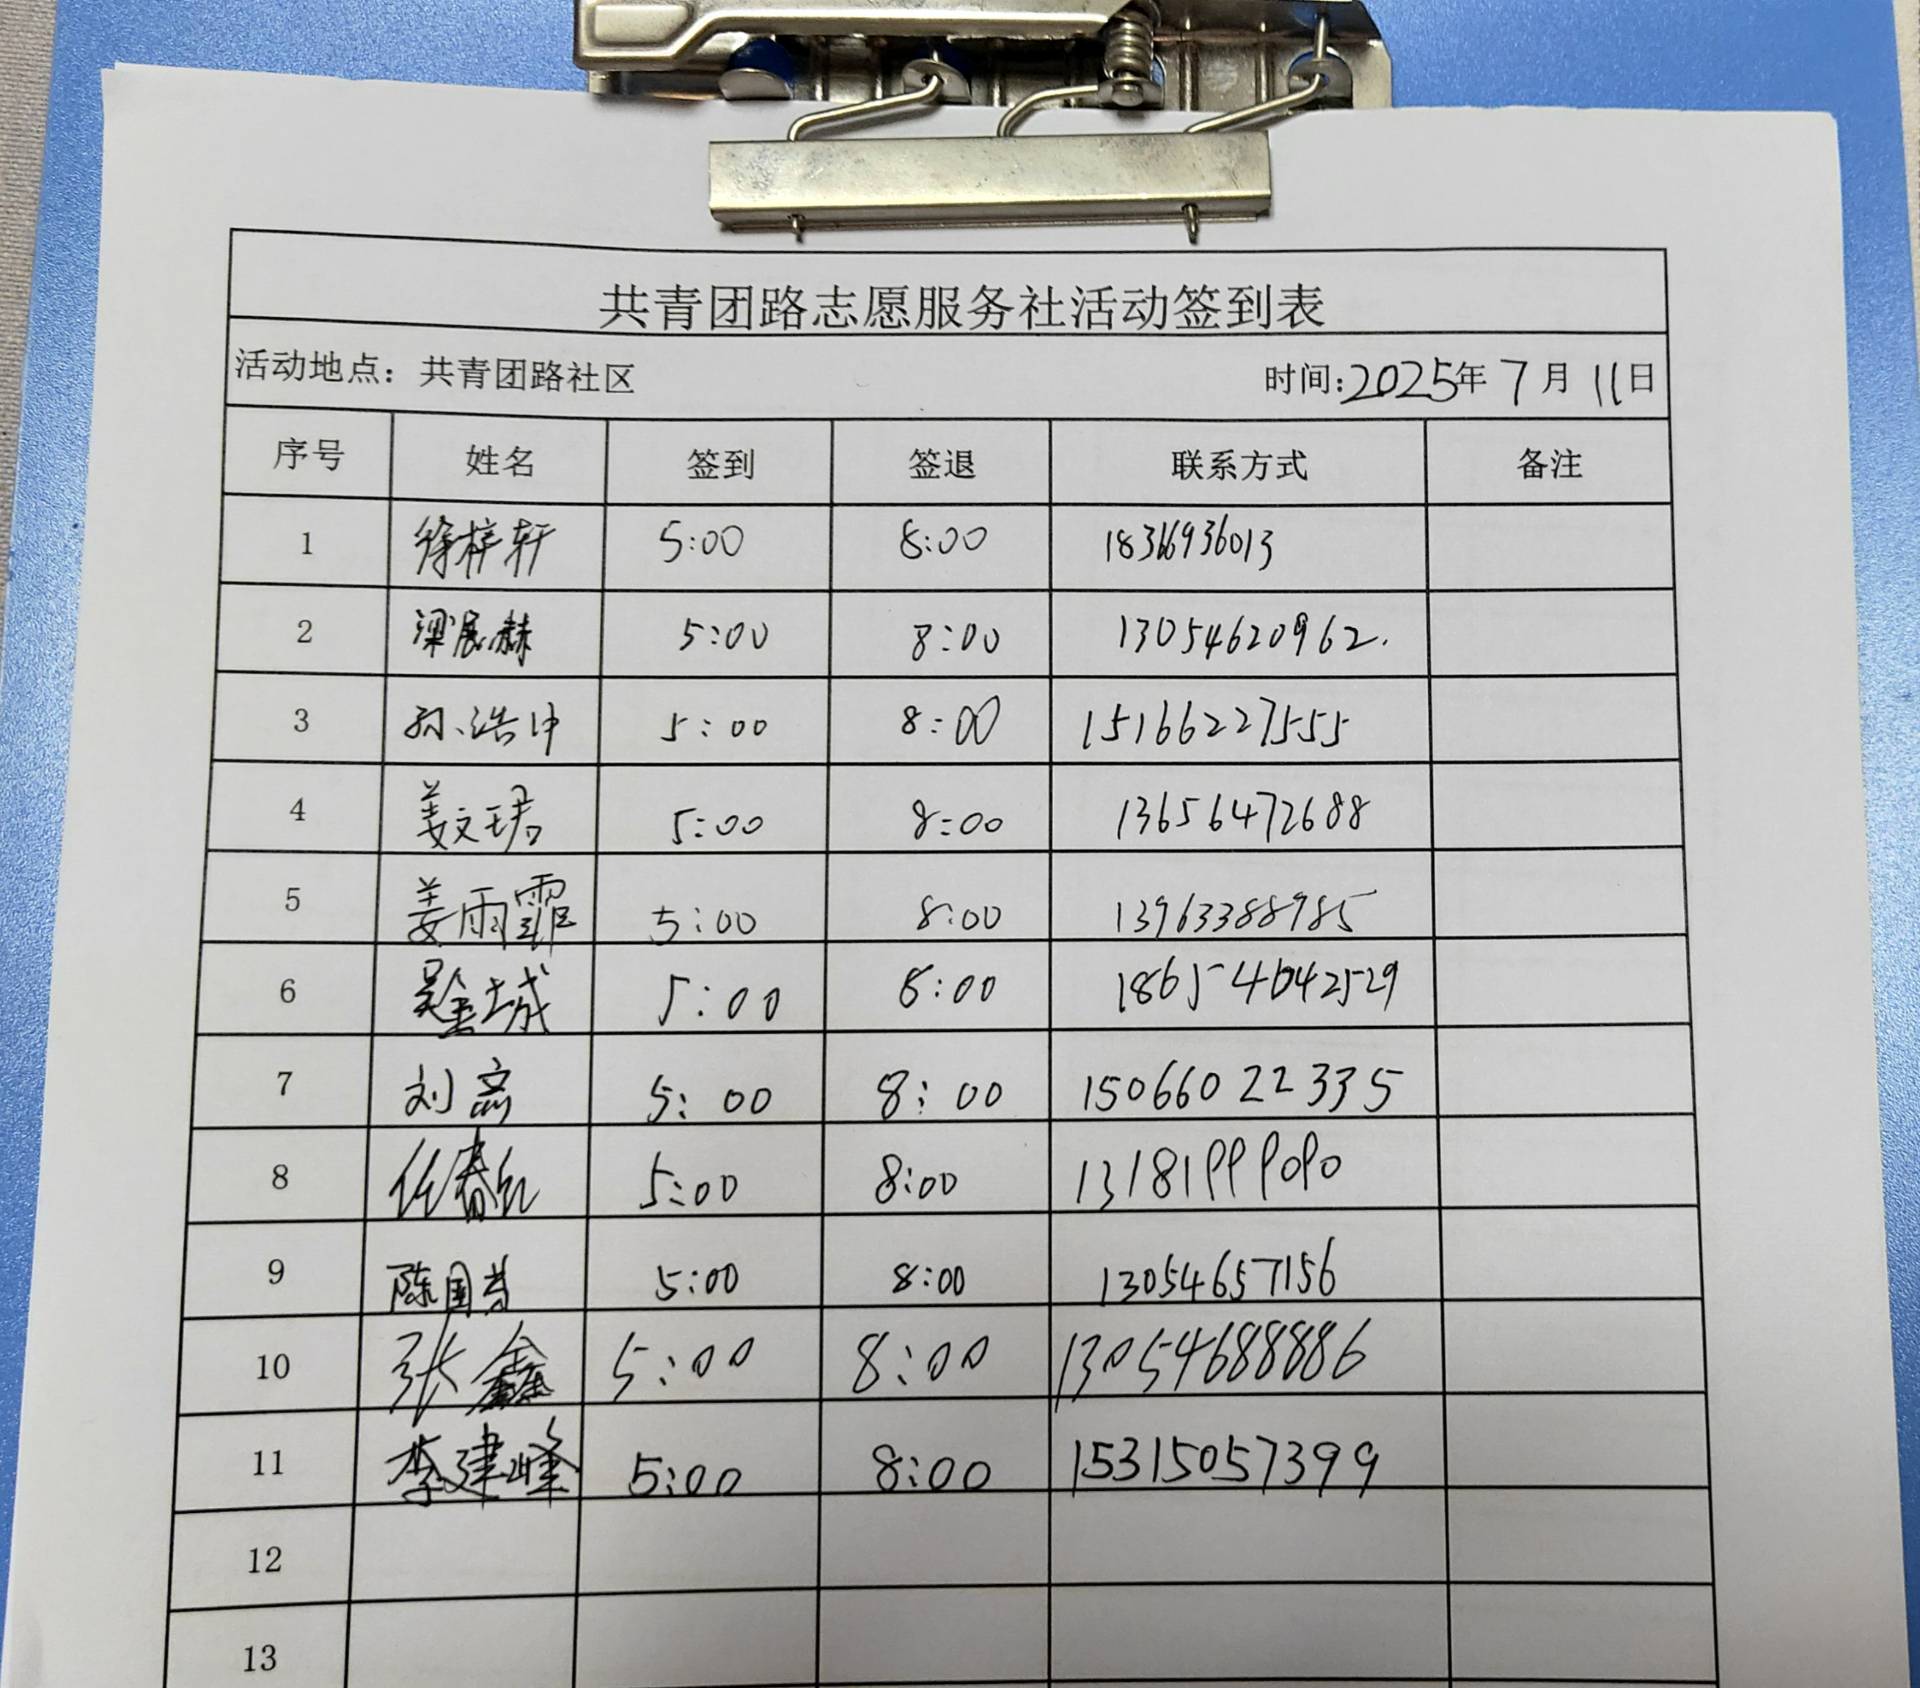 共青团路志愿服务社活动签到表
活动地点：共青团路社区 时间:2025年 7月 11日
序号 姓名 签到 签退 联系方式 备注
1 徐梓轩 5:00 8:00 18366936013
2 梁展赫 5:00 8:00 13054620962.
3 孙浩中 5:00 8:00 15166227555
4 姜文珺 5:00 8:00 13656472688
5 姜雨霏 5:00 8:00 13963388985
6 5:00 8:00 18654642529
7 刘 5:00 8:00 15066022335
8 任春红 5:00 8:00 13181999090
9 陈国 5:00 8:00 13054657156
10 张鑫 5:00 8:00 13054688886
11 李建峰 5:00 8:00 15315057399
12
13